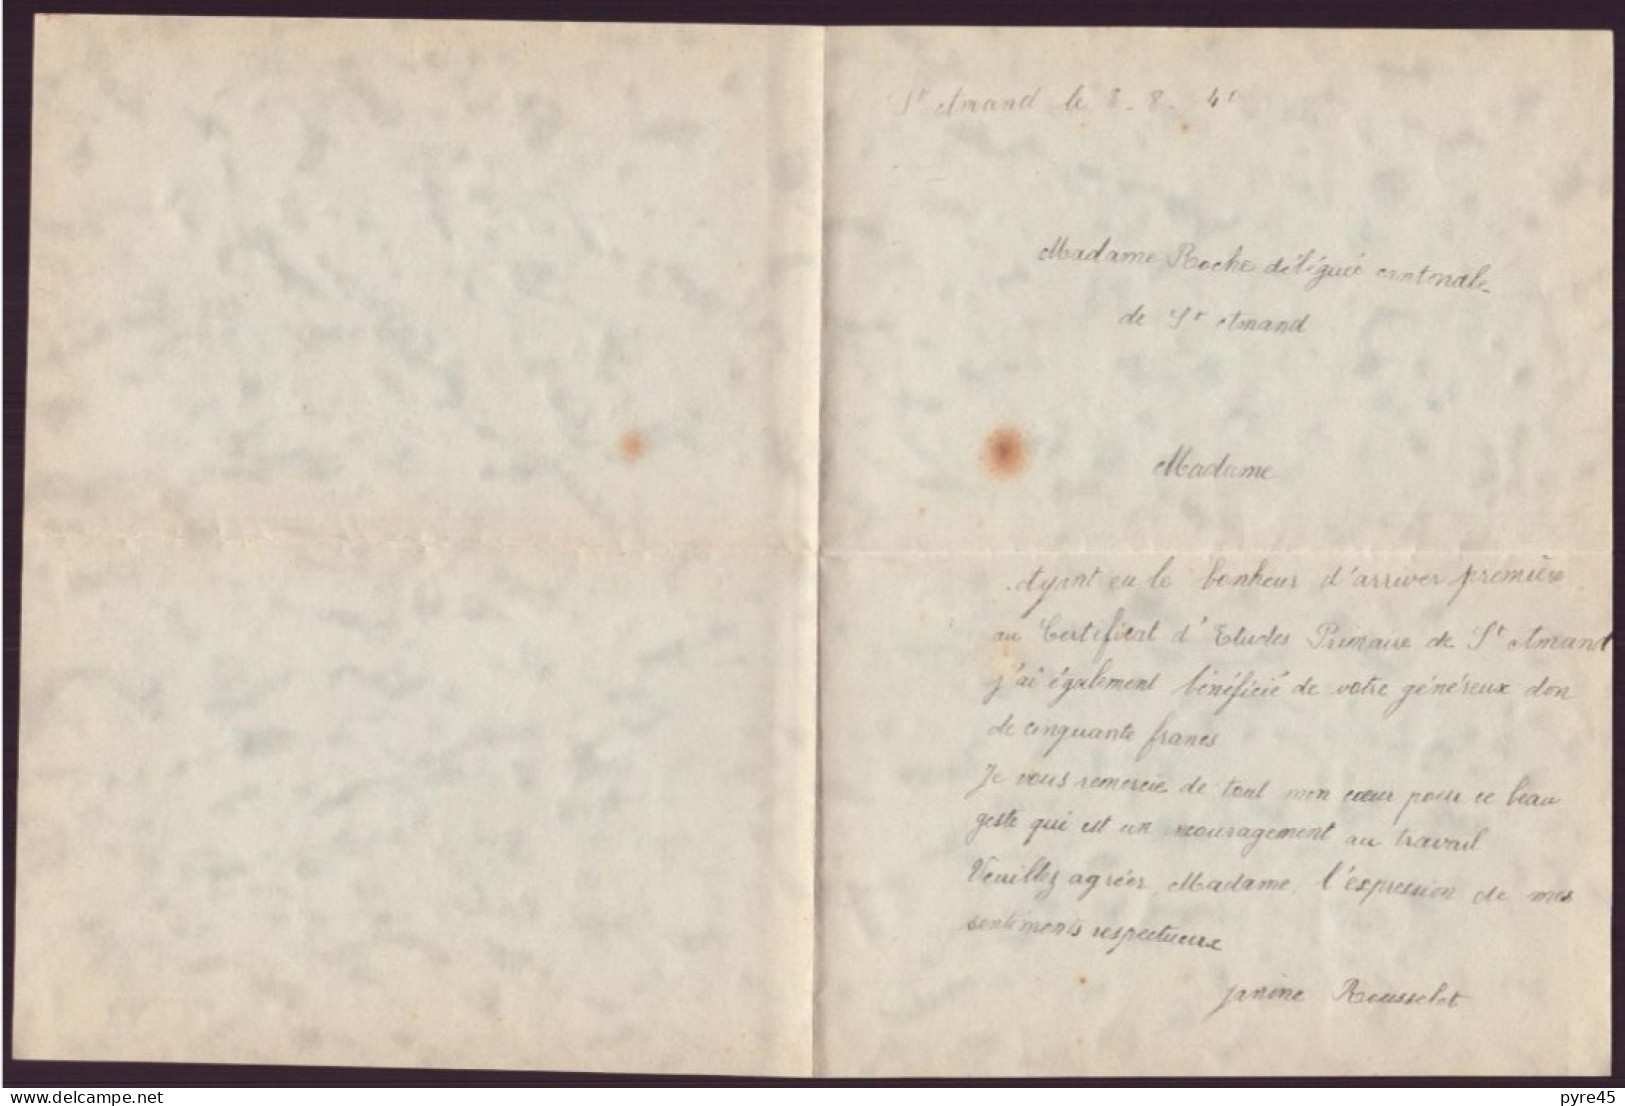 St Amand le 8-8-41
Madame Roche déléguée cantonale
de St Amand
Madame
Ayant eu le bonheur d'arriver première
au Certificat d'Etudes Primaire de St Amand
j'ai également bénéficié de votre généreux don
de cinquante francs
Je vous remercie de tout mon cœur pour ce beau
geste qui est un encouragement au travail
Veuillez agréer, Madame, l'expression de mes
sentiments respectueux
Janine Rousselot
www.delcampe.net
pyre45